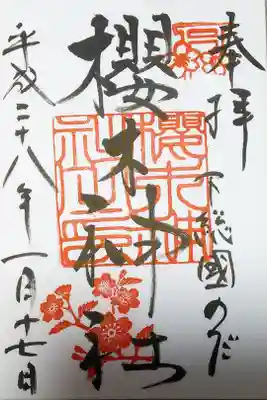 奉拝 下総國のだ
櫻木神社
平成二十八年一月十七日
櫻木神
社之印